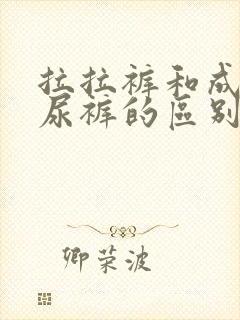 拉拉裤和成
尿裤的區别
卿荣波